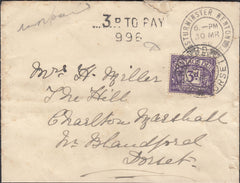 unpaid
3.D TO PAY
996
STURMINSTER NEWTON
6 - PM
30 MR
DORSET
3d
Mrs H. Miller
The Hill
Charlton Marshall
Nr Blandford
Dorset.